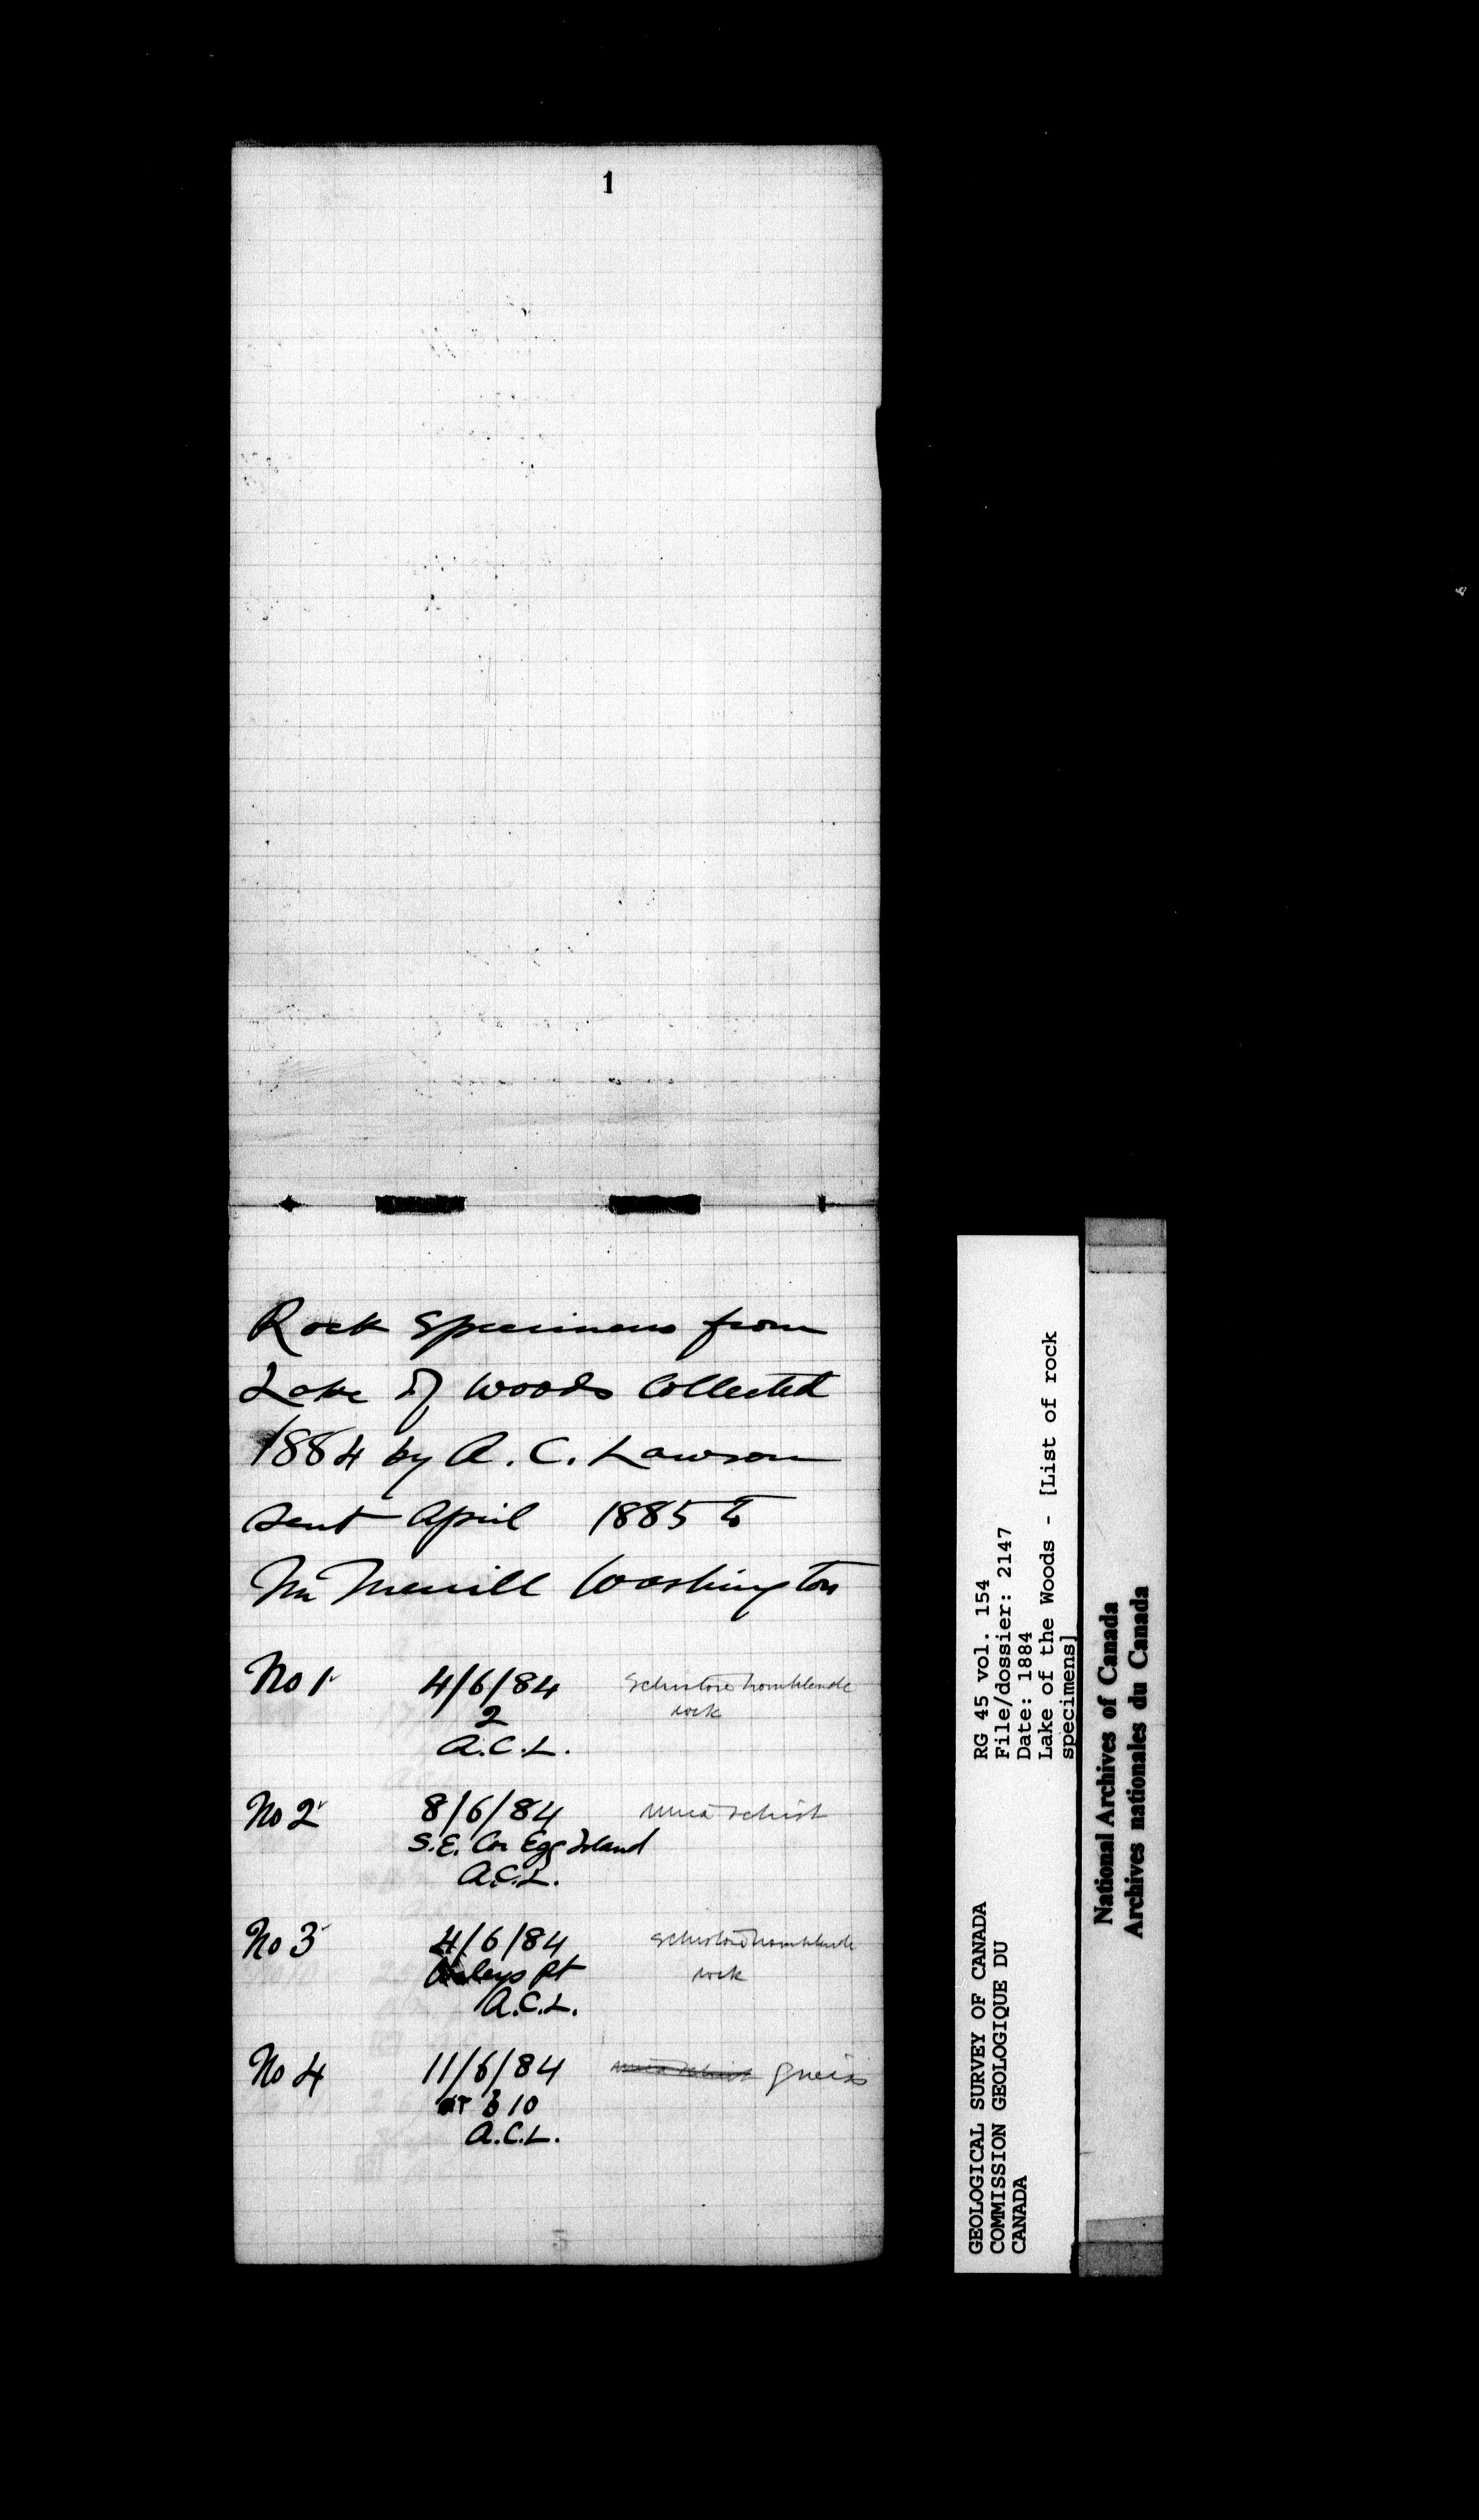 1
Rock Specimens from
Lake of Woods Collected
1884 by A. C. Lawson
sent April 1885 to
Mr Merrill Washington
No 1 4/6/84 Schistose hornblende
2 rock
A.C.L.
No 2 8/6/84 mica schist
S.E. Cor Egg Island
A.C.L.
No 3 4/6/84 Schistose hornblende
Pt rock
A.C.L.
No 4 11/6/84 mica schist gneiss
AT 3 10
A.C.L.
GEOLOGICAL SURVEY OF CANADA
COMMISSION GEOLOGIQUE DU
CANADA
RG 45 vol. 154
File/dossier: 2147
Date: 1884
Lake of the Woods - [List of rock
specimens]
National Archives of Canada
Archives nationales du Canada